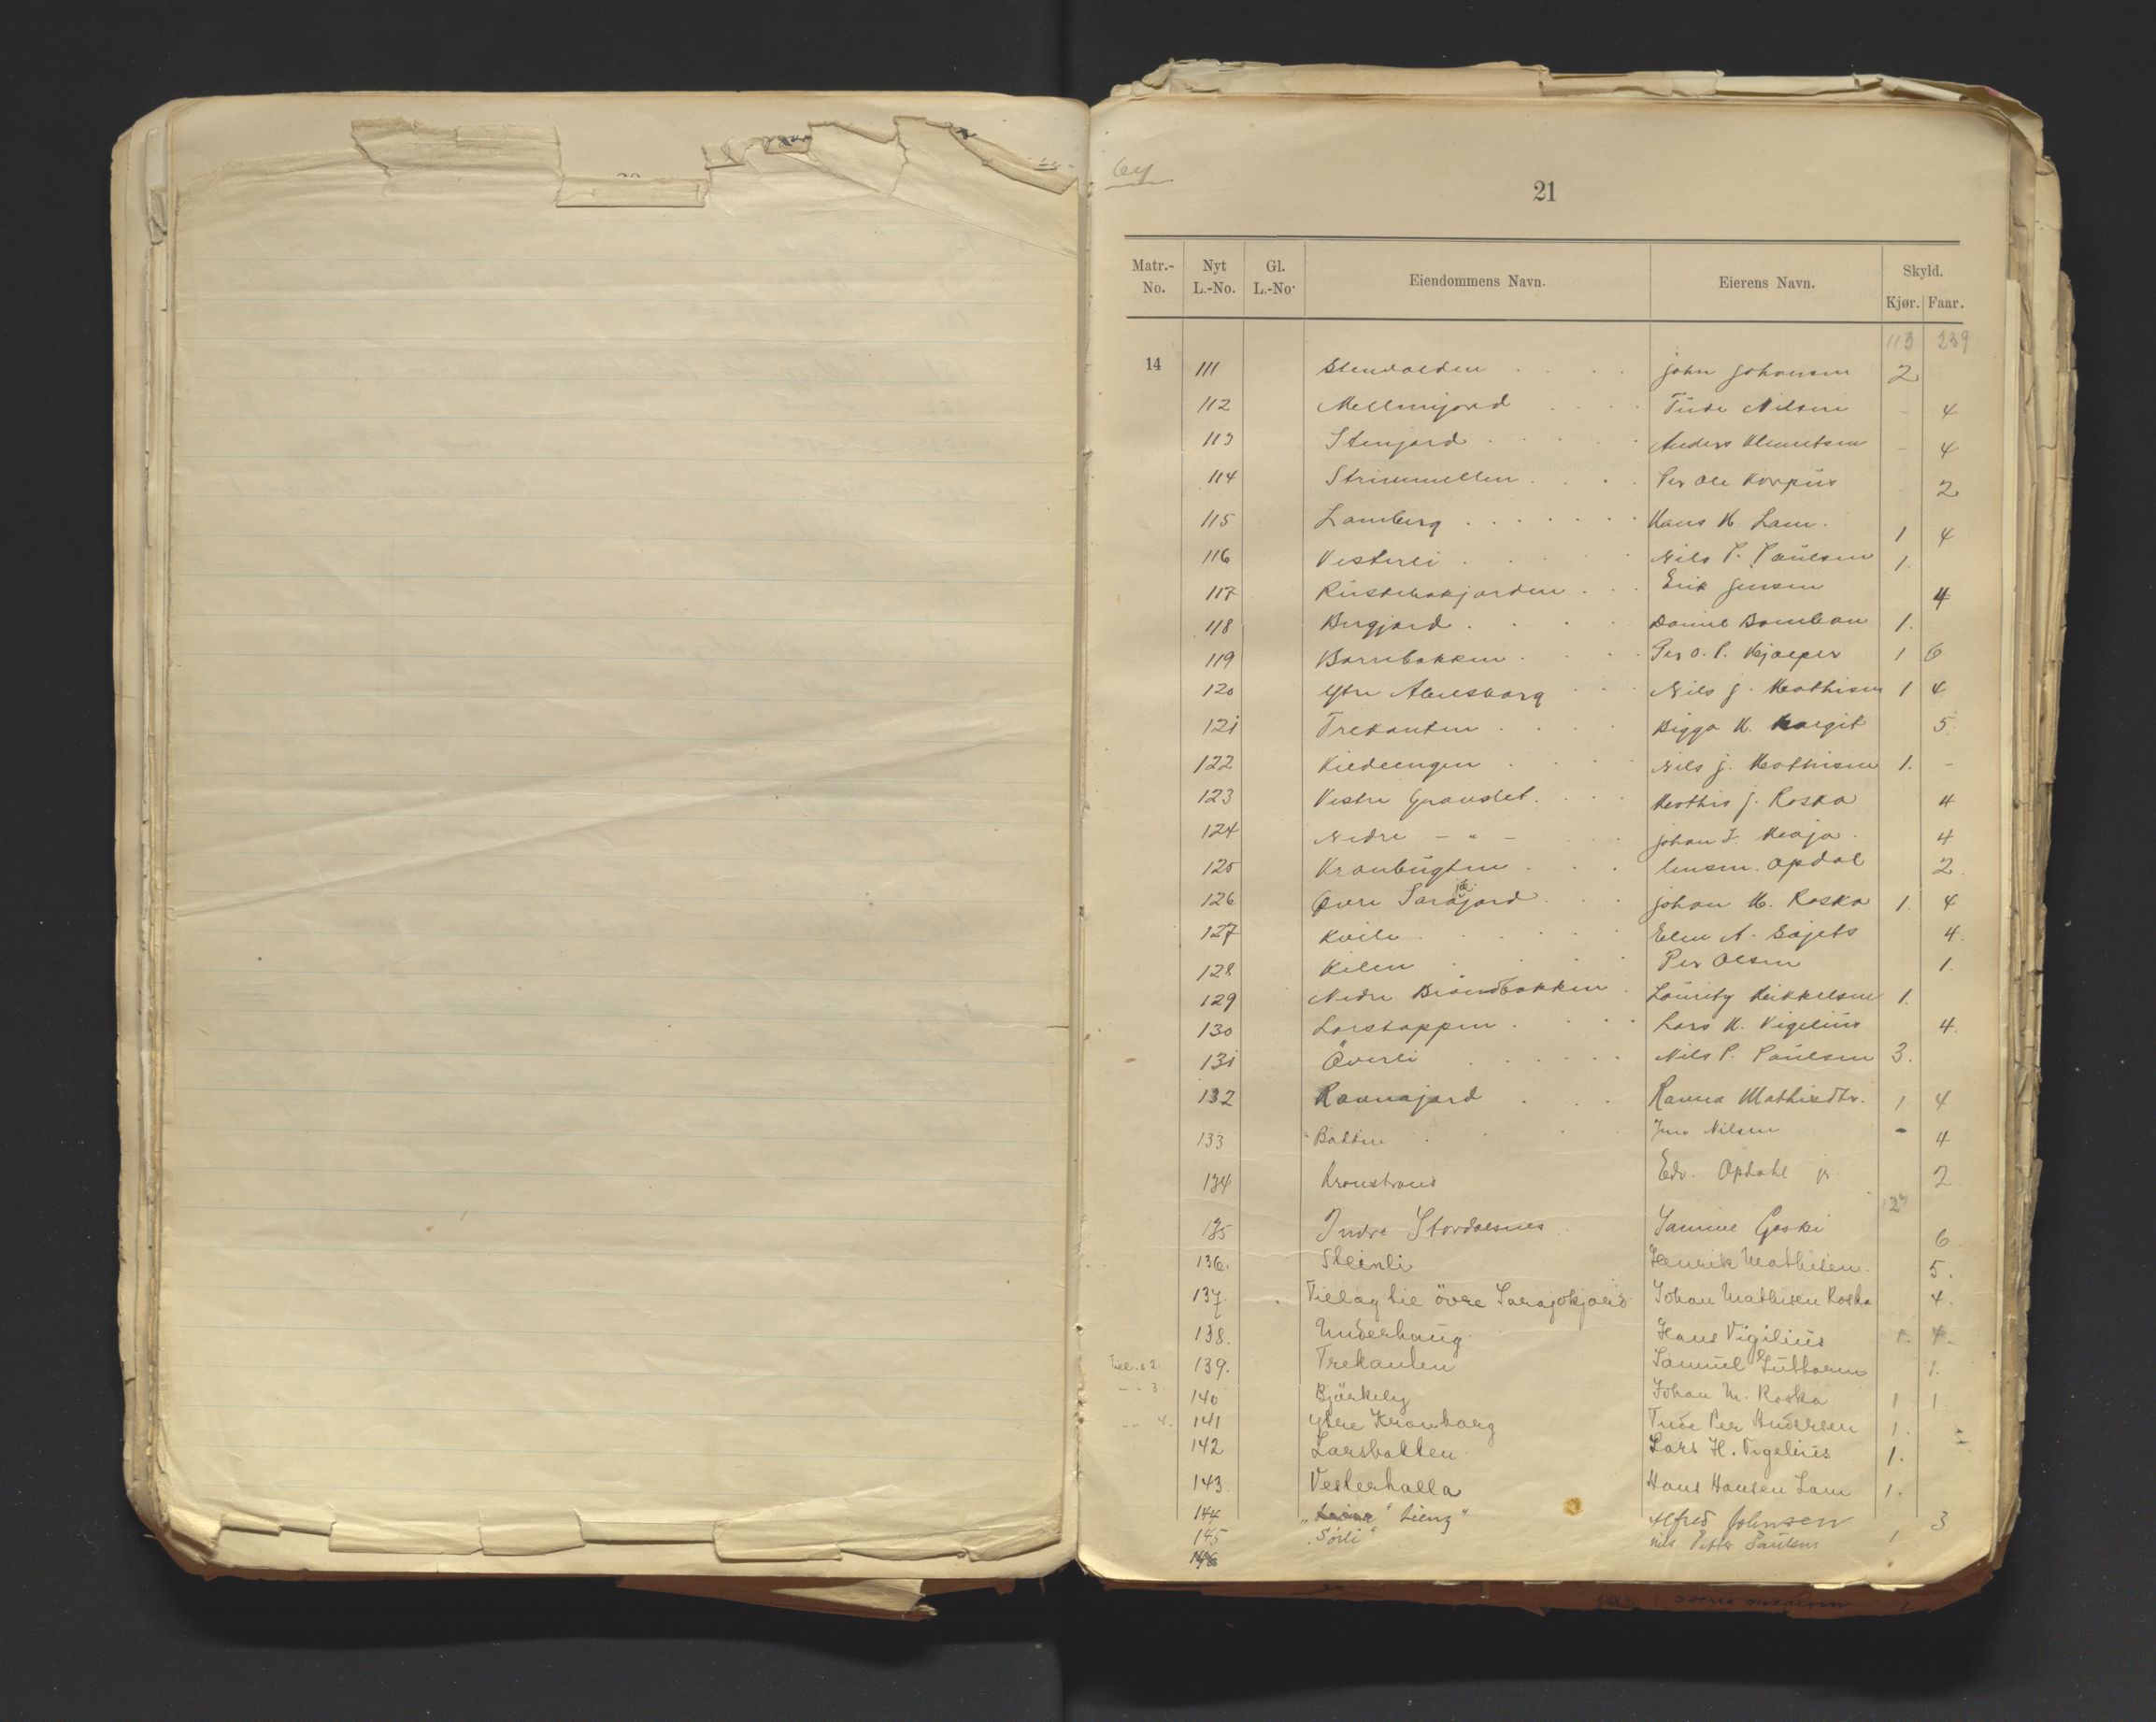 64
21
Matr.-No. Nyt L.-No. Gl. L.-No. Eiendommens Navn. Eierens Navn. Skyld. Kjør. Faar.
113 239
14 111 John Johansen 2
112 Mellemjord Tude Nilsen - 4
113 Stenjord Anders Klemetsen - 4
114 Per Ole Korpus 2
115 Lamberg Hans H. Lam. 1 4
116 Vesterli Nils P. Paulsen 1.
117 Erik Jensen 4
118 Bergjord Daniel 1.
119 Barnebakken Per O. P. Kjæper 1 6
120 Ytre Nils J. Mathisen 1 4
121 Trekanten Bigga M. Margit 5
122 Kildeengen Nils J. Mathisen 1. -
123 Vestre Granslet. Mathis J. Roska 4
124 Nedre - " - Johan I. 4
125 Kronbugten lensm. Opdal 2.
126 Øvre Sarajokjord Johan M. Roska 1. 4
127 Kvile Elen A. Gajets 4.
128 Kilen Per Olsen 1.
129 Nedre Brændbakken Lauritz Mikkelsen 1.
130 Larstoppen Lars H. Vigelius 4.
131 Överli Nils P. Paulsen 3.
132 Ravnajord Ravna Mathisdtr. 1 4
133 Bakken Jens Nilsen - 4
134 Kronstrand Edv. Opdahl jr 2
127
135 Indre Stordalsnes Samuel Gaski 6
136. Steinli Henrik Mathisen 5.
137. Tillæg til övre Sarajokjord Johan Mathisen Roska 4.
138. Underhaug Hans Vigilius 1. 4.
139. Trekanten Samuel 1.
- - 3 140 Björkely Johan M. Roska 1 1
- - 4. 141 Ytre Kronborg Tude Per Andersen 1.
142 Larsbakken Lars H. Vigelius 1.
143. Vesterhalla Hans Hansen Lam 1.
144 "Lieng" Alfred Johnsen 3
145 "Sörli" Nils Petter Paulsen 1
146